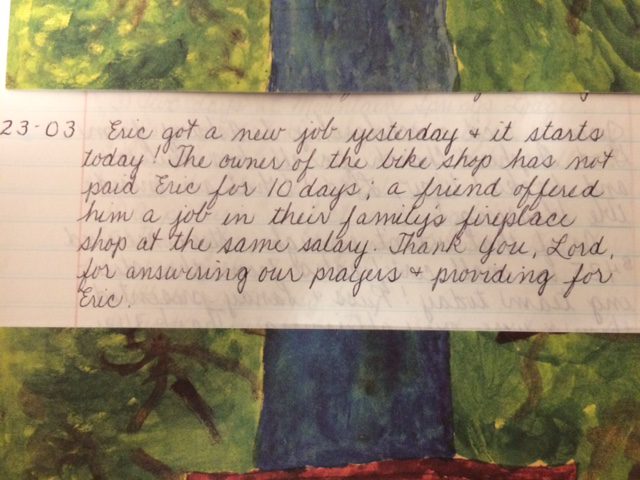 23-03 Eric got a new job yesterday & it starts
today! The owner of the bike shop has not
paid Eric for 10 days; a friend offered
him a job in their family's fireplace
shop at the same salary. Thank You, Lord,
for answering our prayers & providing for
Eric.